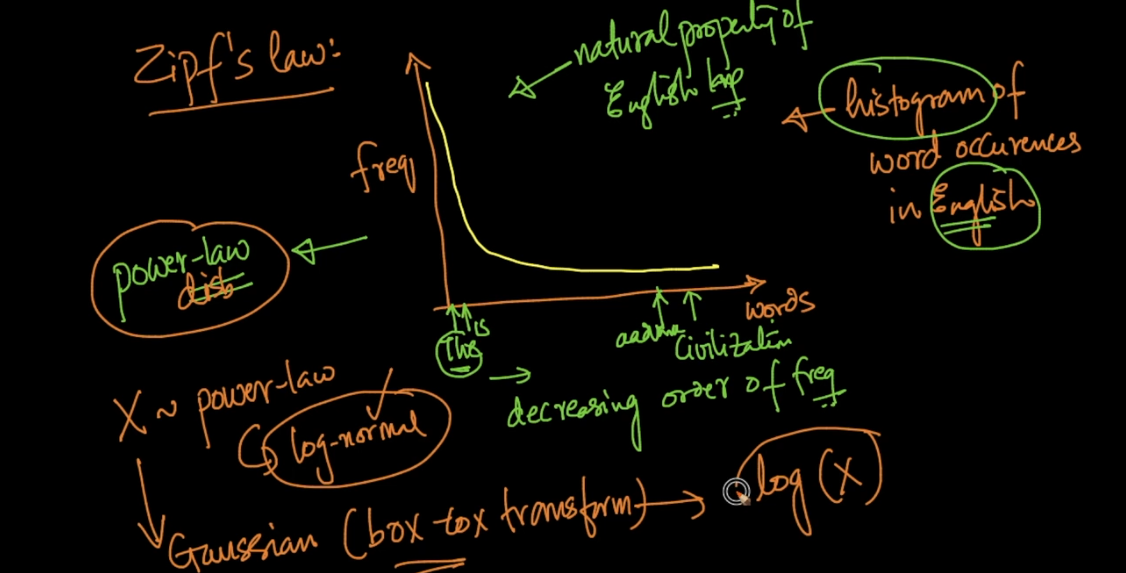 Zipf's law:
natural property of
English lang
histogram of
word occurences
in English
freq
power-law
dist
words
This
is
Civilization
decreasing order of freq
X ~ power-law
log-normal
Gaussian (box-cox transform) → log(x)